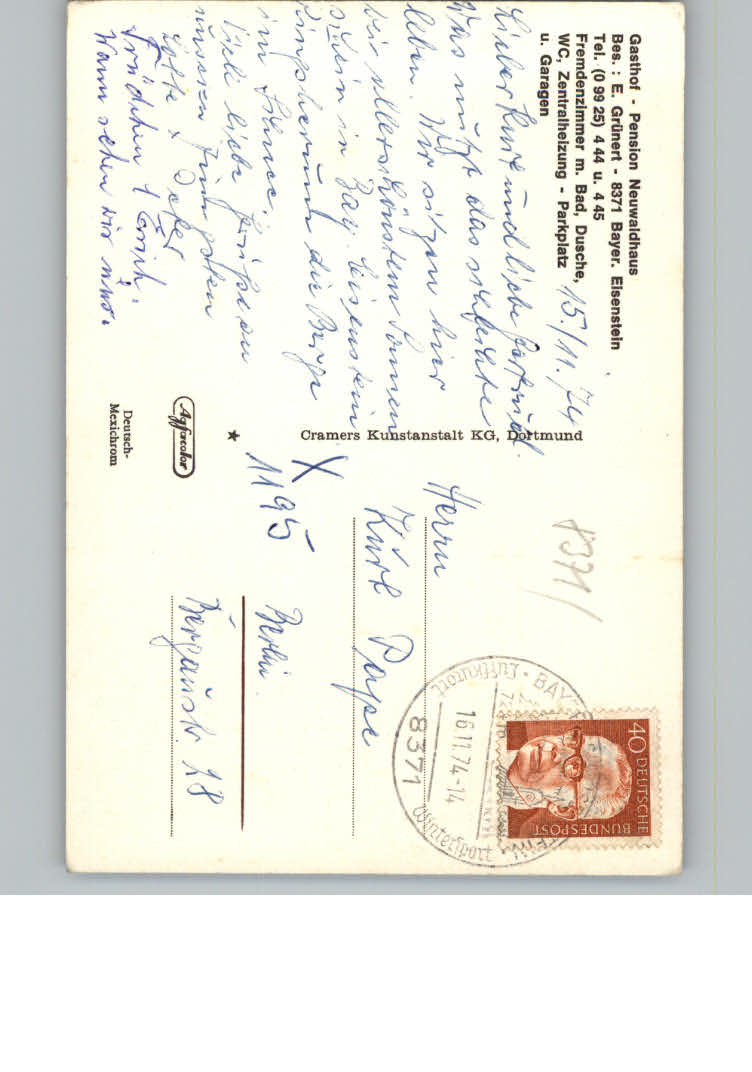 Gasthof - Pension Neuwaldhaus
Bes. : E. Grünert - 8371 Bayer. Eisenstein
Tel. (0 99 25) 4 44 u. 4 45
Fremdenzimmer m. Bad, Dusche,
WC, Zentralheizung - Parkplatz
u. Garagen
15./11.74
Lieber Kurt und liebe Gertrud.
Was nützt das schlechte
Leben. Wir sitzen hier
bei allerschönstem Sonnen
schein in Bay. Eisenstein
ringsherum die Berge
im Schnee.
Viele liebe Grüße an
unseren
Lotte +
Fridchen + Erich.
Wann sehen wir uns.
Cramers Kunstanstalt KG, Dortmund
Agfacolor
Deutsch-
Mexichrom
8371
Herrn
Kurt Pape
X
1195 Berlin.
28
Luftkurort
16.11.74-14
8371
Wintersport
40 DEUTSCHE
BUNDESPOST